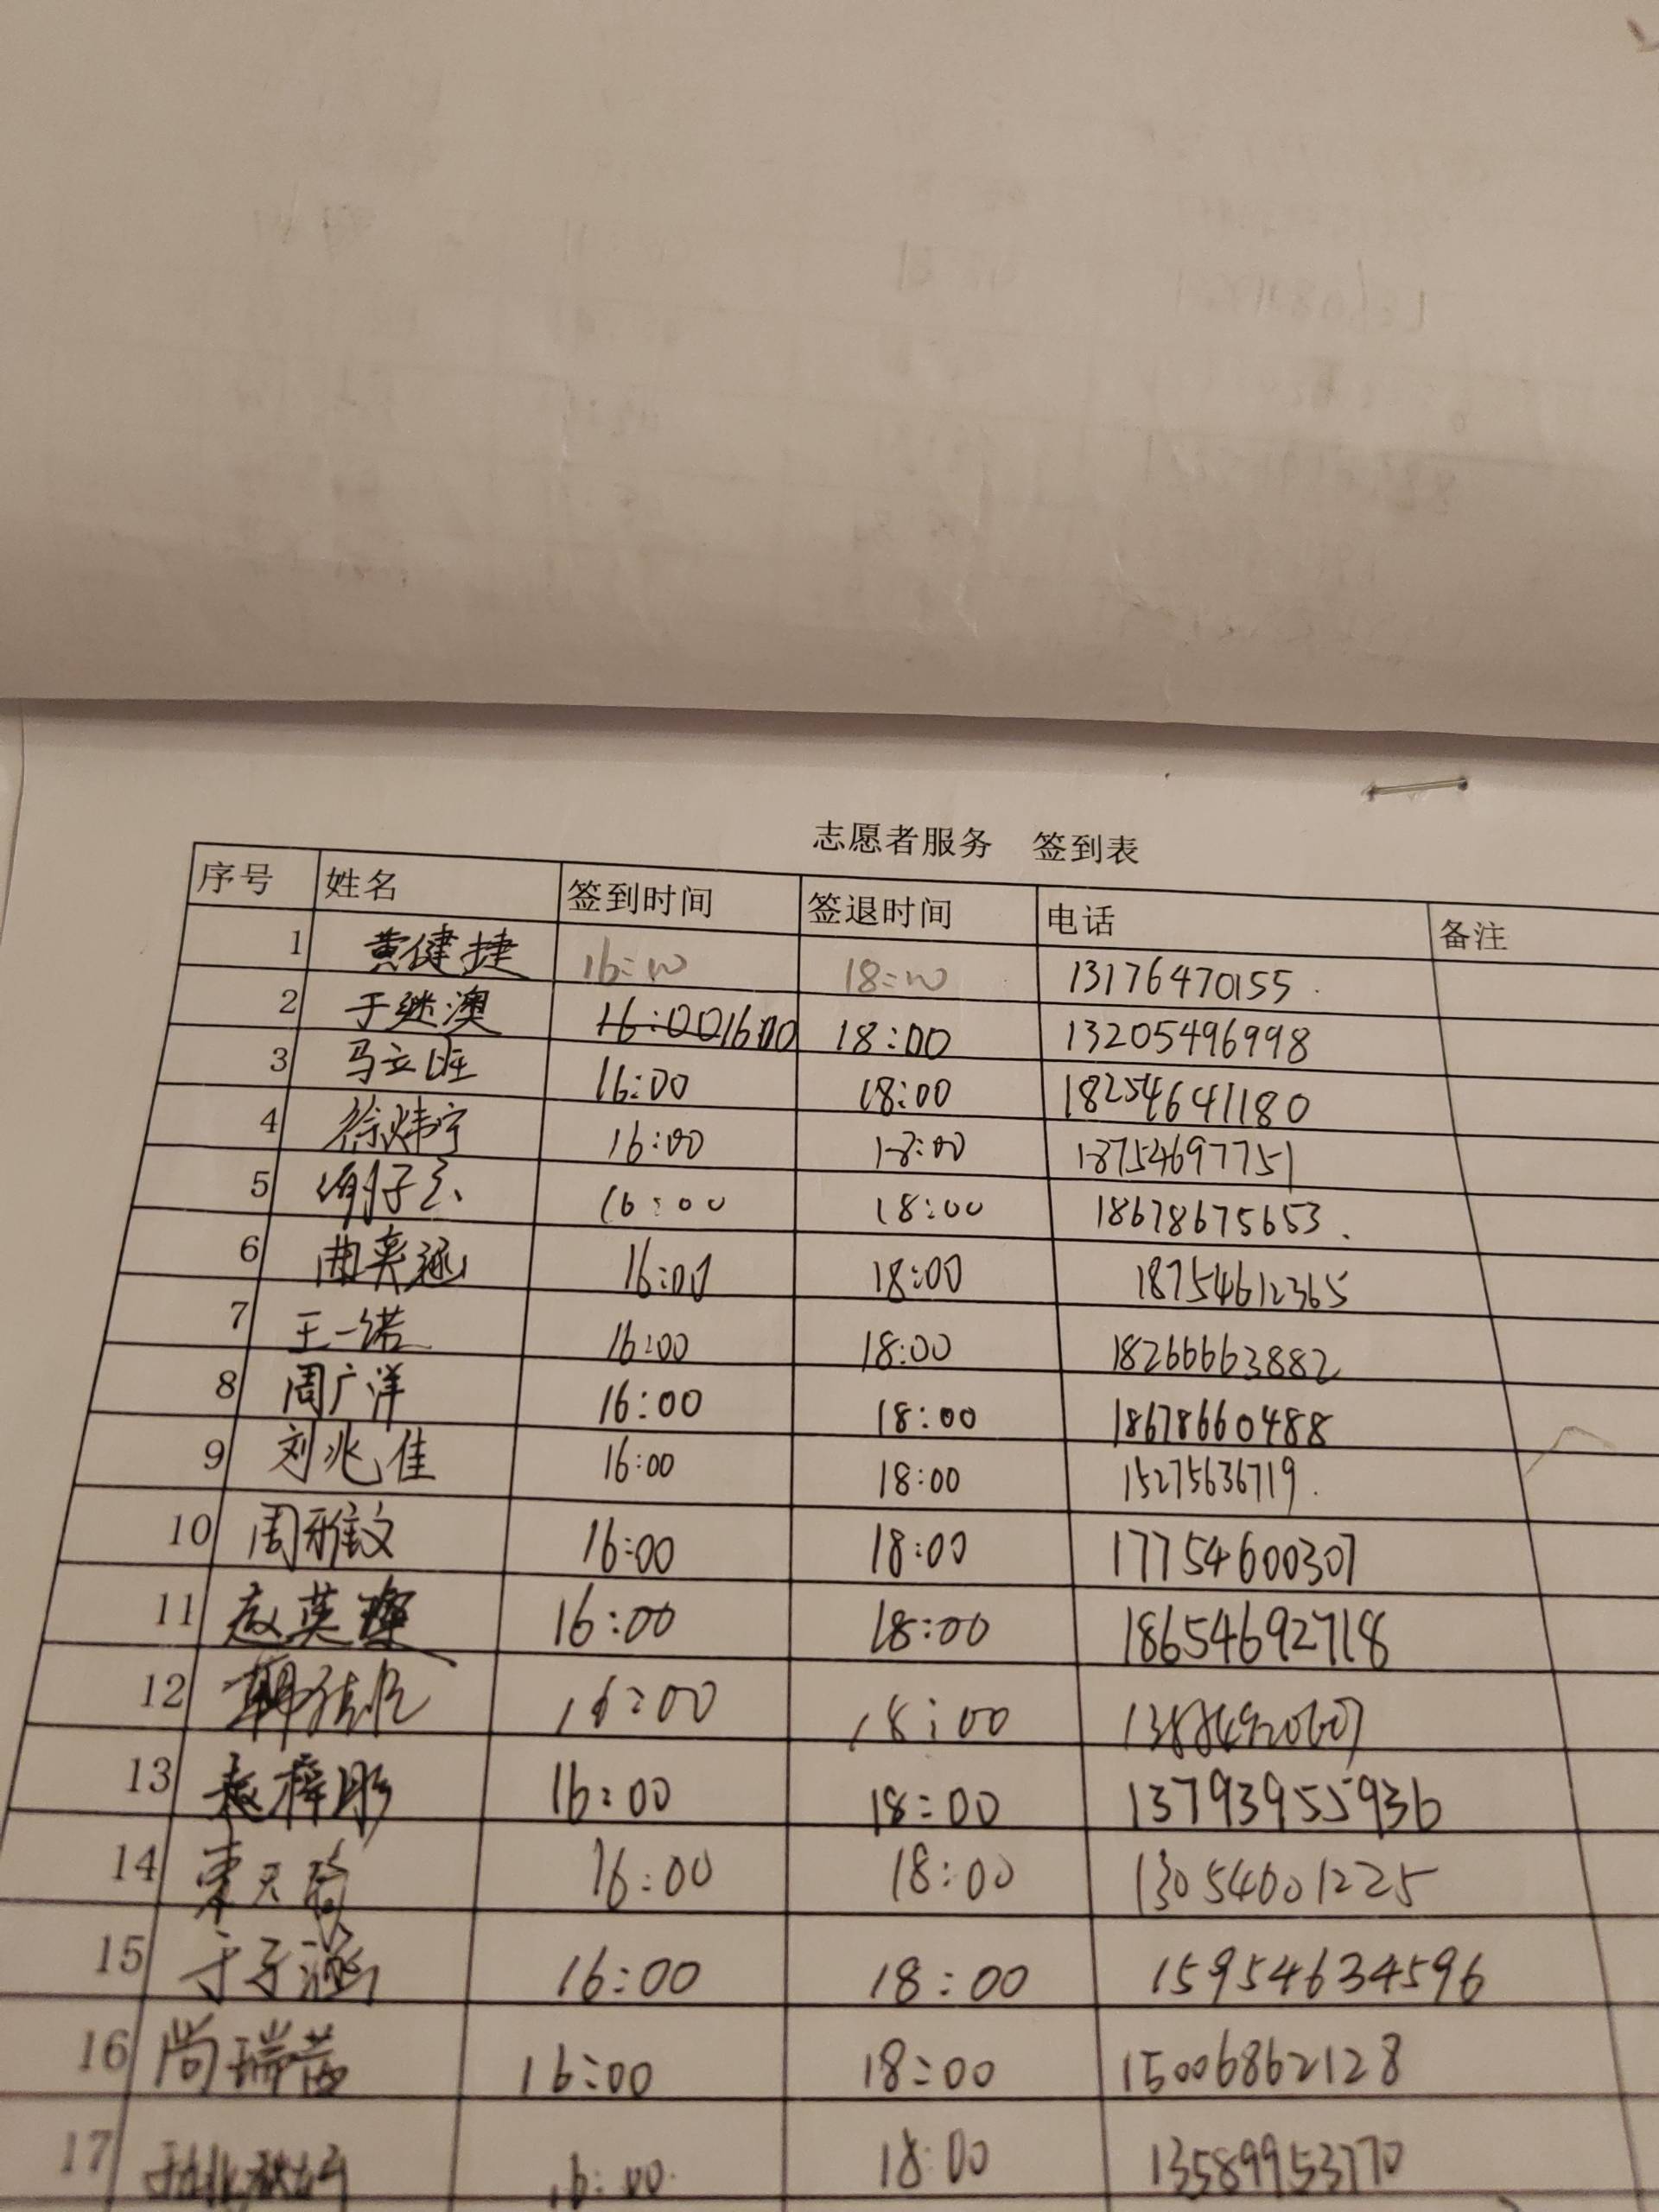 志愿者服务 签到表
序号 姓名 签到时间 签退时间 电话 备注
1 黄健捷 16:00 18:00 13176470155
2 于继澳 16:00 16:00 18:00 13205496998
3 马立旺 16:00 18:00 18254641180
4 徐炜宁 16:00 18:00 18754697751
5 16:00 18:00 18678675653
6 曲奕涵 16:00 18:00 18754612365
7 王一诺 16:00 18:00 18266663882
8 周广洋 16:00 18:00 18678660488
9 刘兆佳 16:00 18:00 15275636719
10 周雅文 16:00 18:00 17754600307
11 赵英璨 16:00 18:00 18654692718
12 16:00 18:00
13 赵梓彤 16:00 18:00 137939555936
14 16:00 18:00 13054601225
15 于子涵 16:00 18:00 15954634596
16 尚瑞茜 16:00 18:00 15006862128
17 16:00 18:00 13589953770